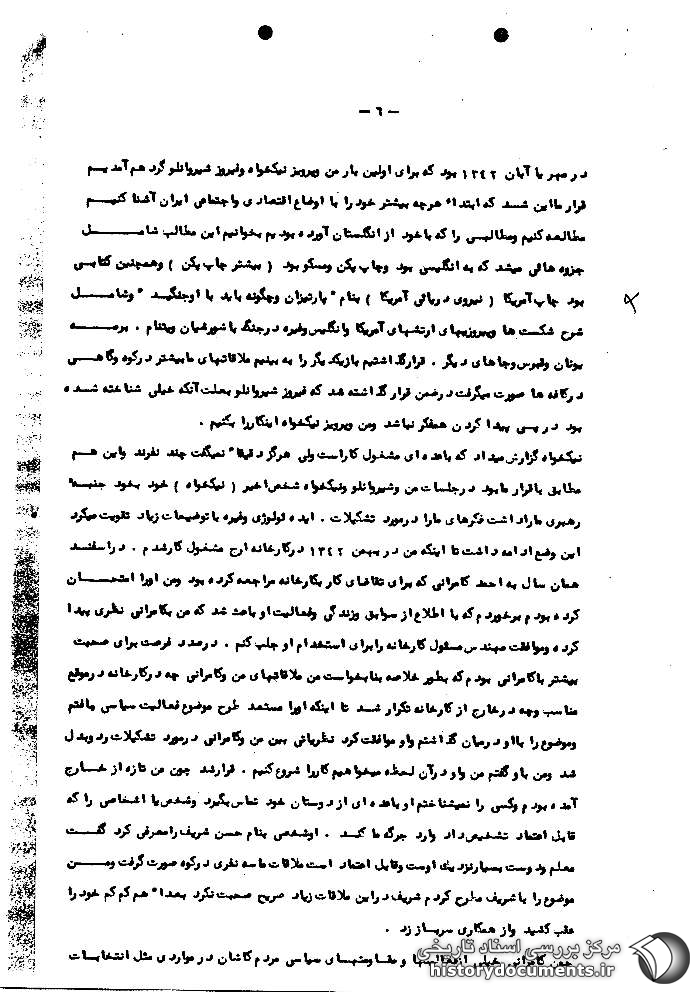 — ٦ —
در مهر یا آبان ١٣٤٢ بود که برای اولین بار من وپرویز نیکخواه وفیروز شیروانلو گرد هم آمدیم
قرار مااین شد که ابتداء هرچه بیشتر خود را با اوضاع اقتصادی واجتماعی ایران آشنا کنیم
مطالعه کنیم ومطالبی را که باخود از انگلستان آورده بودیم بخوانیم این مطالب شامل
جزوه هائی میشد که به انگلیسی بود وچاپ پکن ومسکو بود ( بیشتر چاپ پکن ) وهمچنین کتابی
بود چاپ آمریکا ( نیروی دریائی آمریکا ) بنام " پارتیزان وچگونه باید با اوجنگید " وشامل
شرح شکست ها وپیروزیهای ارتشهای آمریکا وانگلیس وغیره درجنگ با شورشیان ویتنام . برمه
یونان وقبرس وجاهای دیگر . قرارگذاشتیم بازیکدیگر را به بینیم ملاقاتهای مابیشتر درکوه وگاهی
درکافه ها صورت میگرفت درضمن قرار گذاشته شد که فیروز شیروانلو بعلت آنکه خیلی شناخته شده
بود در پی پیدا کردن همفکر نباشد ومن وپرویز نیکخواه اینکاررا بکنیم .
نیکخواه گزارش میداد که باعده ای مشغول کاراست ولی هرگز دقیقا" نمیگفت چند نفرند واین هم
مطابق باقرار مابود درجلسات من وشیروانلو ونیکخواه شخص اخیر ( نیکخواه ) خود بخود جنبه
رهبری ماراداشت فکرهای مارا درمورد تشکیلات . ایدئولوژی وغیره با توضیحات زیاد تقویت میکرد
این وضع ادامه داشت تا اینکه من در بهمن ١٣٤٢ درکارخانه ارج مشغول کارشدم . دراسفند
همان سال به احمد کامرانی که برای تقاضای کار بکارخانه مراجعه کرده بود ومن اورا امتحان
کرده بودم برخوردم که با اطلاع از سوابق وزندگی وفعالیت او باعث شد که من بکامرانی نظری پیدا
کرده وموافقت مهندس مسئول کارخانه رابرای استخدام او جلب کنم . درصدد فرصت برای صحبت
بیشتر باکامرانی بودم که بطور خلاصه بنابخواست من ملاقاتهای من وکامرانی چه درکارخانه درموقع
مناسب وچه درخارج از کارخانه تکرار شد تا اینکه اورا مستعد طرح موضوع فعالیت سیاسی یافتم
وموضوع را بااو درمیان گذاشتم واو موافقت کرد نظریاتی بین من وکامرانی درمورد تشکیلات ردوبدل
شد ومن باو گفتم من واو درآن لحظه میخواهیم کاررا شروع کنیم . قرارشد چون من تازه از خارج
آمده بودم وکسی را نمیشناختم او باعده ای از دوستان خود تماس بگیرد وشخص یا اشخاصی را که
قابل اعتماد تشخیص داد وارد جرگه ما کند . اوشخصی بنام حسن شریف رامعرفی کرد گفت
معلم ودوست بسیار نزدیك اوست وقابل اعتماد است ملاقات ماسه نفری درکوه صورت گرفت ومن
موضوع را باشریف مطرح کردم شریف دراین ملاقات زیاد صریح صحبت نکرد بعدا" هم کم کم خود را
عقب کشید واز همکاری سرباز زد .
چون کامرانی خیلی ازفعالیتها و مقاومتهای سیاسی مردم کاشان در مواردی مثل انتخابات
مرکز بررسی اسناد تاریخی
historydocuments.ir